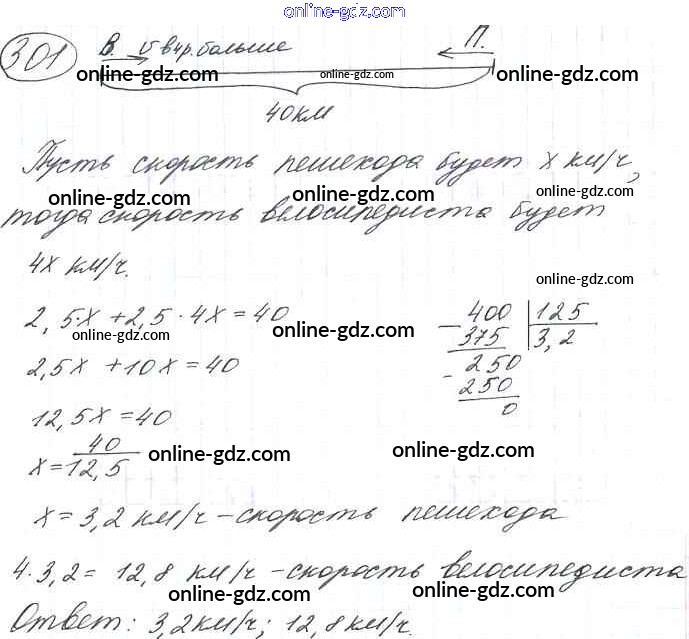 online-gdz.com
301 В. v в 4 р. больше П.
online-gdz.com online-gdz.com online-gdz.com
40 км
Пусть скорость пешехода будет x км/ч,
online-gdz.com online-gdz.com online-gdz.com
тогда скорость велосипедиста будет
4x км/ч.
online-gdz.com
2,5·x + 2,5·4x = 40
400 | 125
online-gdz.com online-gdz.com
- 375 | 3,2
2,5x + 10x = 40
- 250
250
0
12,5x = 40
x = 40/12,5
online-gdz.com online-gdz.com
x = 3,2 км/ч – скорость пешехода
online-gdz.com online-gdz.com
4·3,2 = 12,8 км/ч – скорость велосипедиста
online-gdz.com online-gdz.com
Ответ: 3,2 км/ч; 12,8 км/ч.